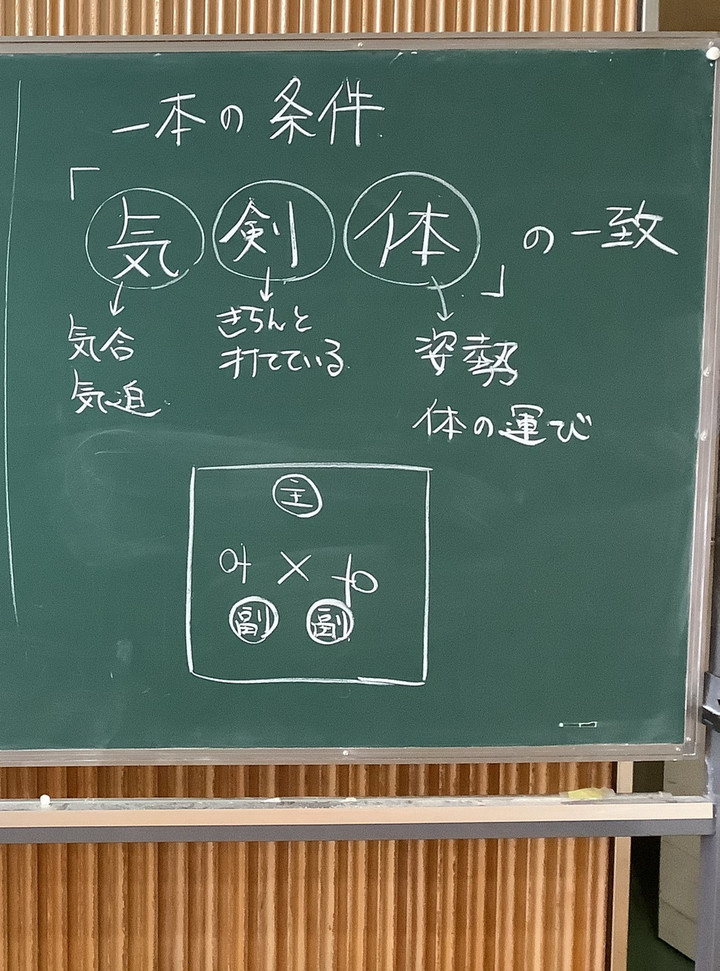 一本の条件
「気 剣 体」の一致
気合
気迫
きちんと
打てている
姿勢
体の運び
主
×
副 副